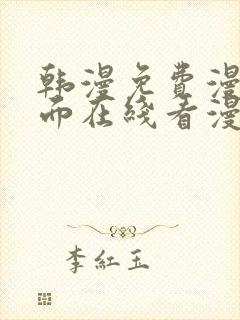 韩漫免费漫
而在线看漫
李红玉